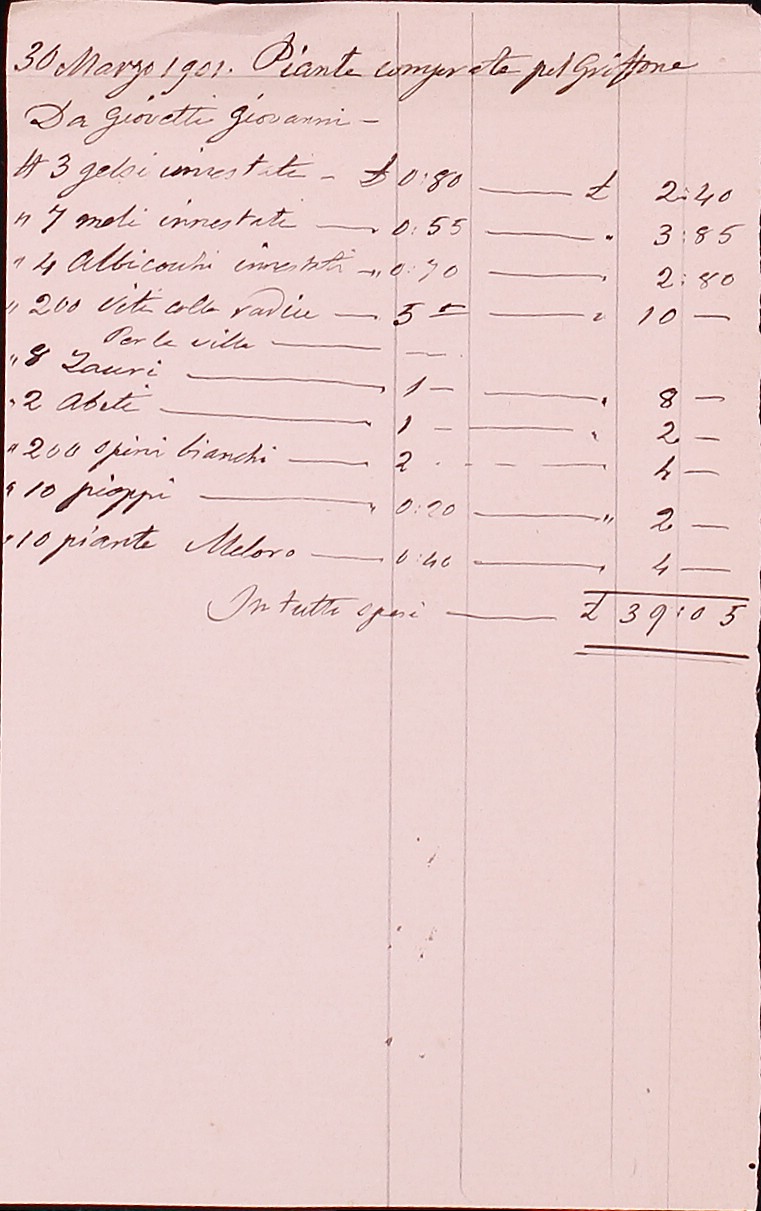 30 Marzo 1901. Piante comperate pel Griffone
Da Giovetti Giovanni -
N 3 gelsi innestati - £ 0:80 — £ 2:40
" 7 meli innestati — 0:55 — " 3:85
" 4 Albicocchi innestati - " 0:70 — " 2:80
" 200 Viti colle radici — 5 — — " 10 —
Per la villa — —
" 8 Lauri — 1 — — " 8 —
" 2 Abeti — 1 — — " 2 —
" 200 spini bianchi — 2 - — 4 —
" 10 pioppi — " 0:20 — " 2 —
" 10 piante — 0:40 — " 4 —
In tutto spesi — £ 39:05